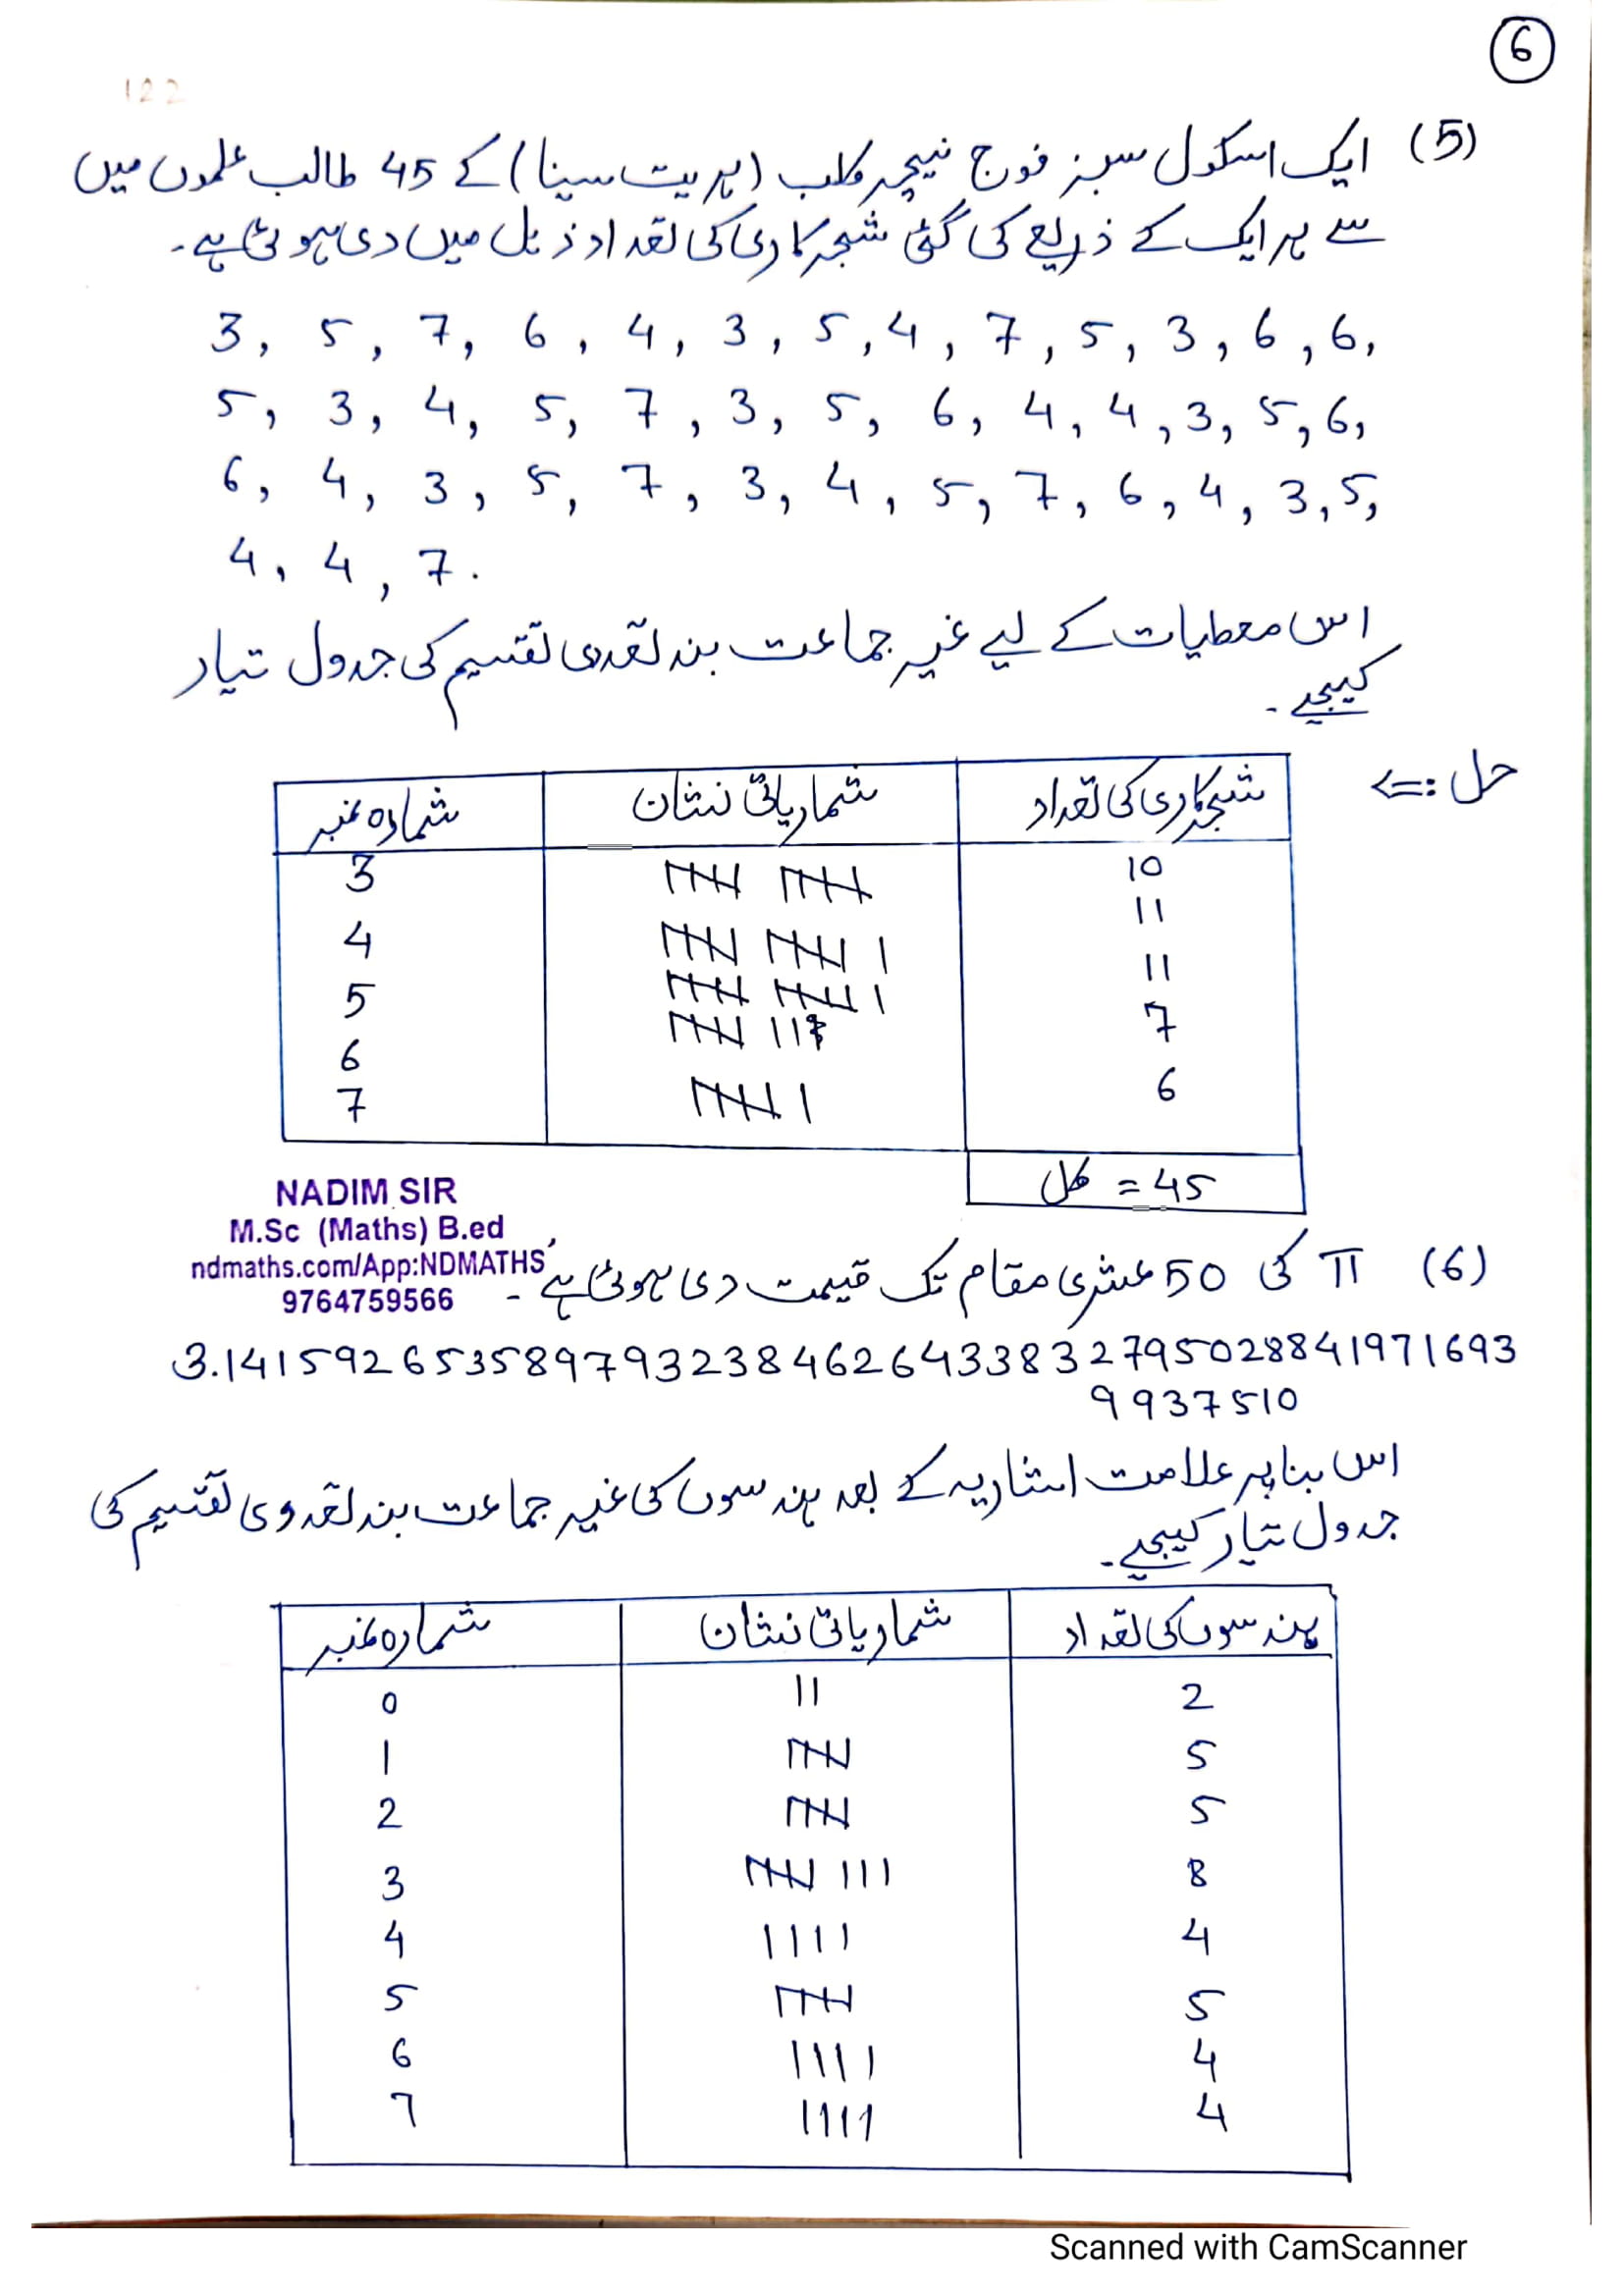 6
122
(5) ایک اسکول سبز فوج نیچر کلب (ہریت سینا) کے 45 طالب علموں میں
سے ہر ایک کے ذریعے کی گئی شجرکاری کی تعداد ذیل میں دی ہوئی ہے۔
3, 5, 7, 6, 4, 3, 5, 4, 7, 5, 3, 6, 6,
5, 3, 4, 5, 7, 3, 5, 6, 4, 4, 3, 5, 6,
6, 4, 3, 5, 7, 3, 4, 5, 7, 6, 4, 3, 5,
4, 4, 7.
اس معطیات کے لیے غیر جماعت بند تعددی تقسیم کی جدول تیار
کیجیے۔
حل :⇐
شمارہ نمبر شماریاتی نشان شجرکاری کی تعداد
3 10
4 11
5 11
6 7
7 6
کل = 45
NADIM SIR
M.Sc (Maths) B.ed
ndmaths.com/App:NDMATHS
9764759566
(6) π کی 50 عشری مقام تک قیمت دی ہوئی ہے۔
3.1415926535897932384626433832795028841971693
9937510
اس بنا پر علامت اعشاریہ کے بعد ہندسوں کی غیر جماعت بند تعددی تقسیم کی
جدول تیار کیجیے۔
شمارہ نمبر شماریاتی نشان ہندسوں کی تعداد
0 || 2
1 5
2 5
3 8
4 |||| 4
5 5
6 |||| 4
7 |||| 4
Scanned with CamScanner